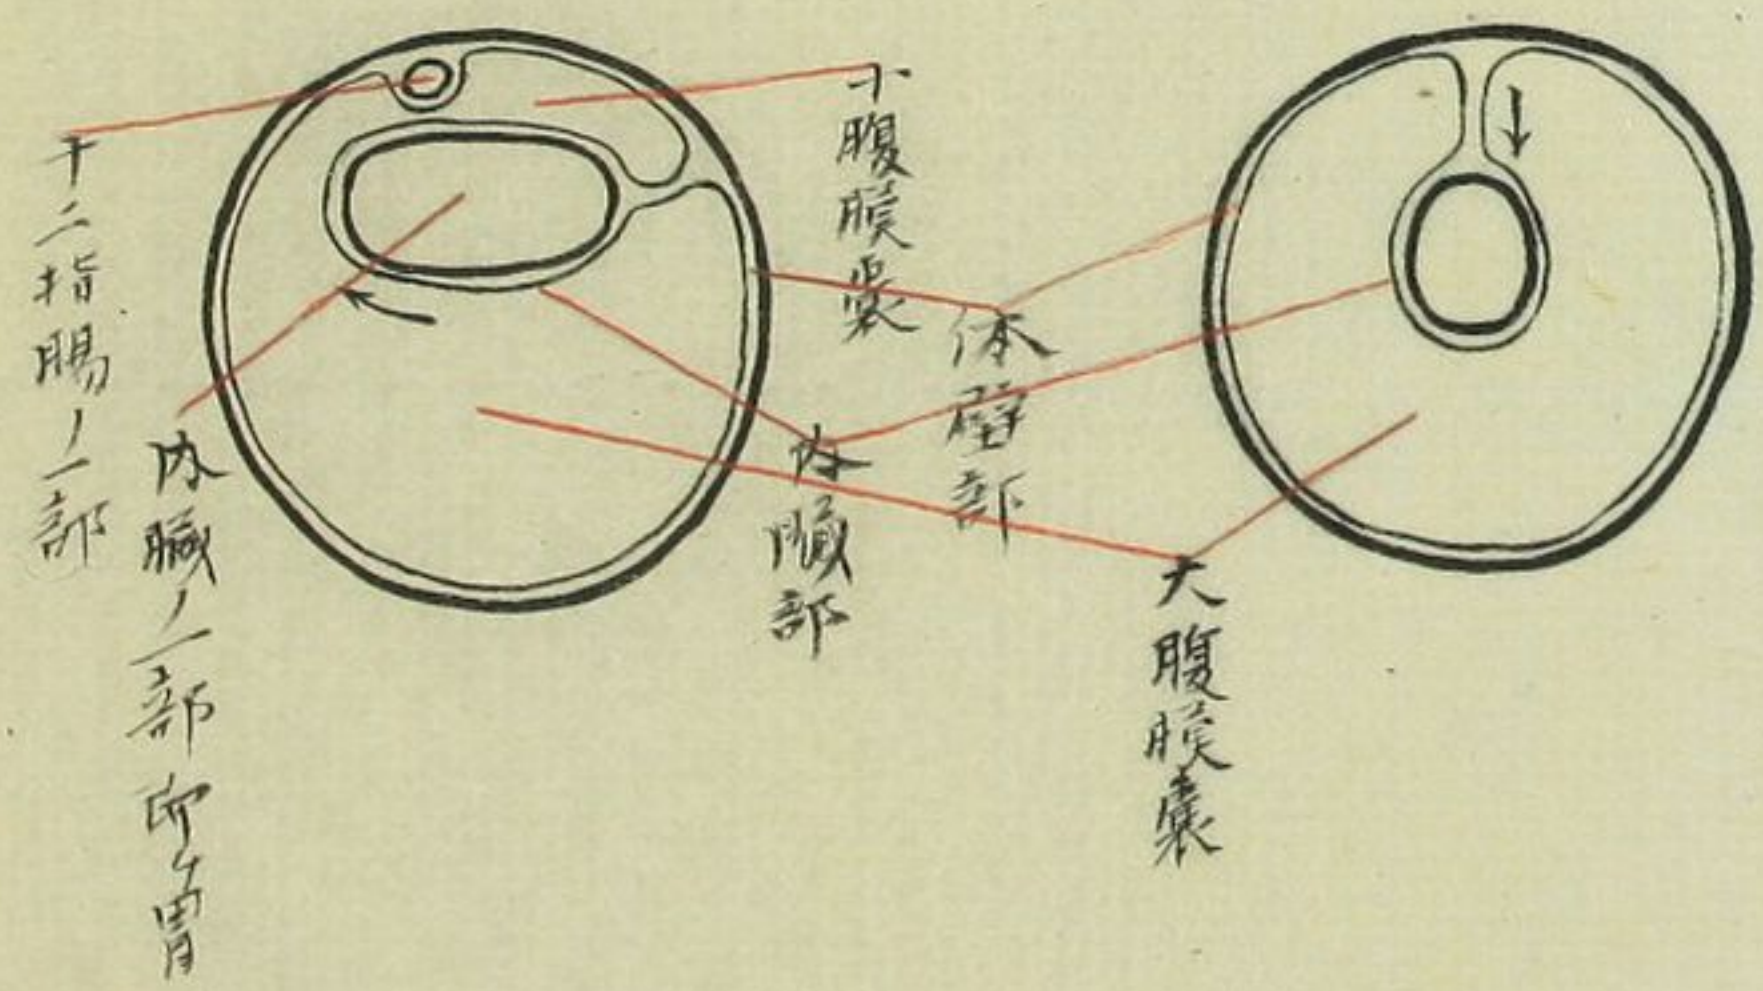 十二指腸ノ一部
内臓ノ一部即チ胃
小腹膜嚢
内臓部
体壁部
大腹膜嚢